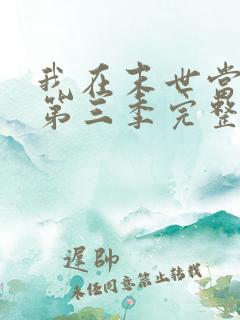 我在末世当
第三季完整
遲帥
未经同意禁止转载